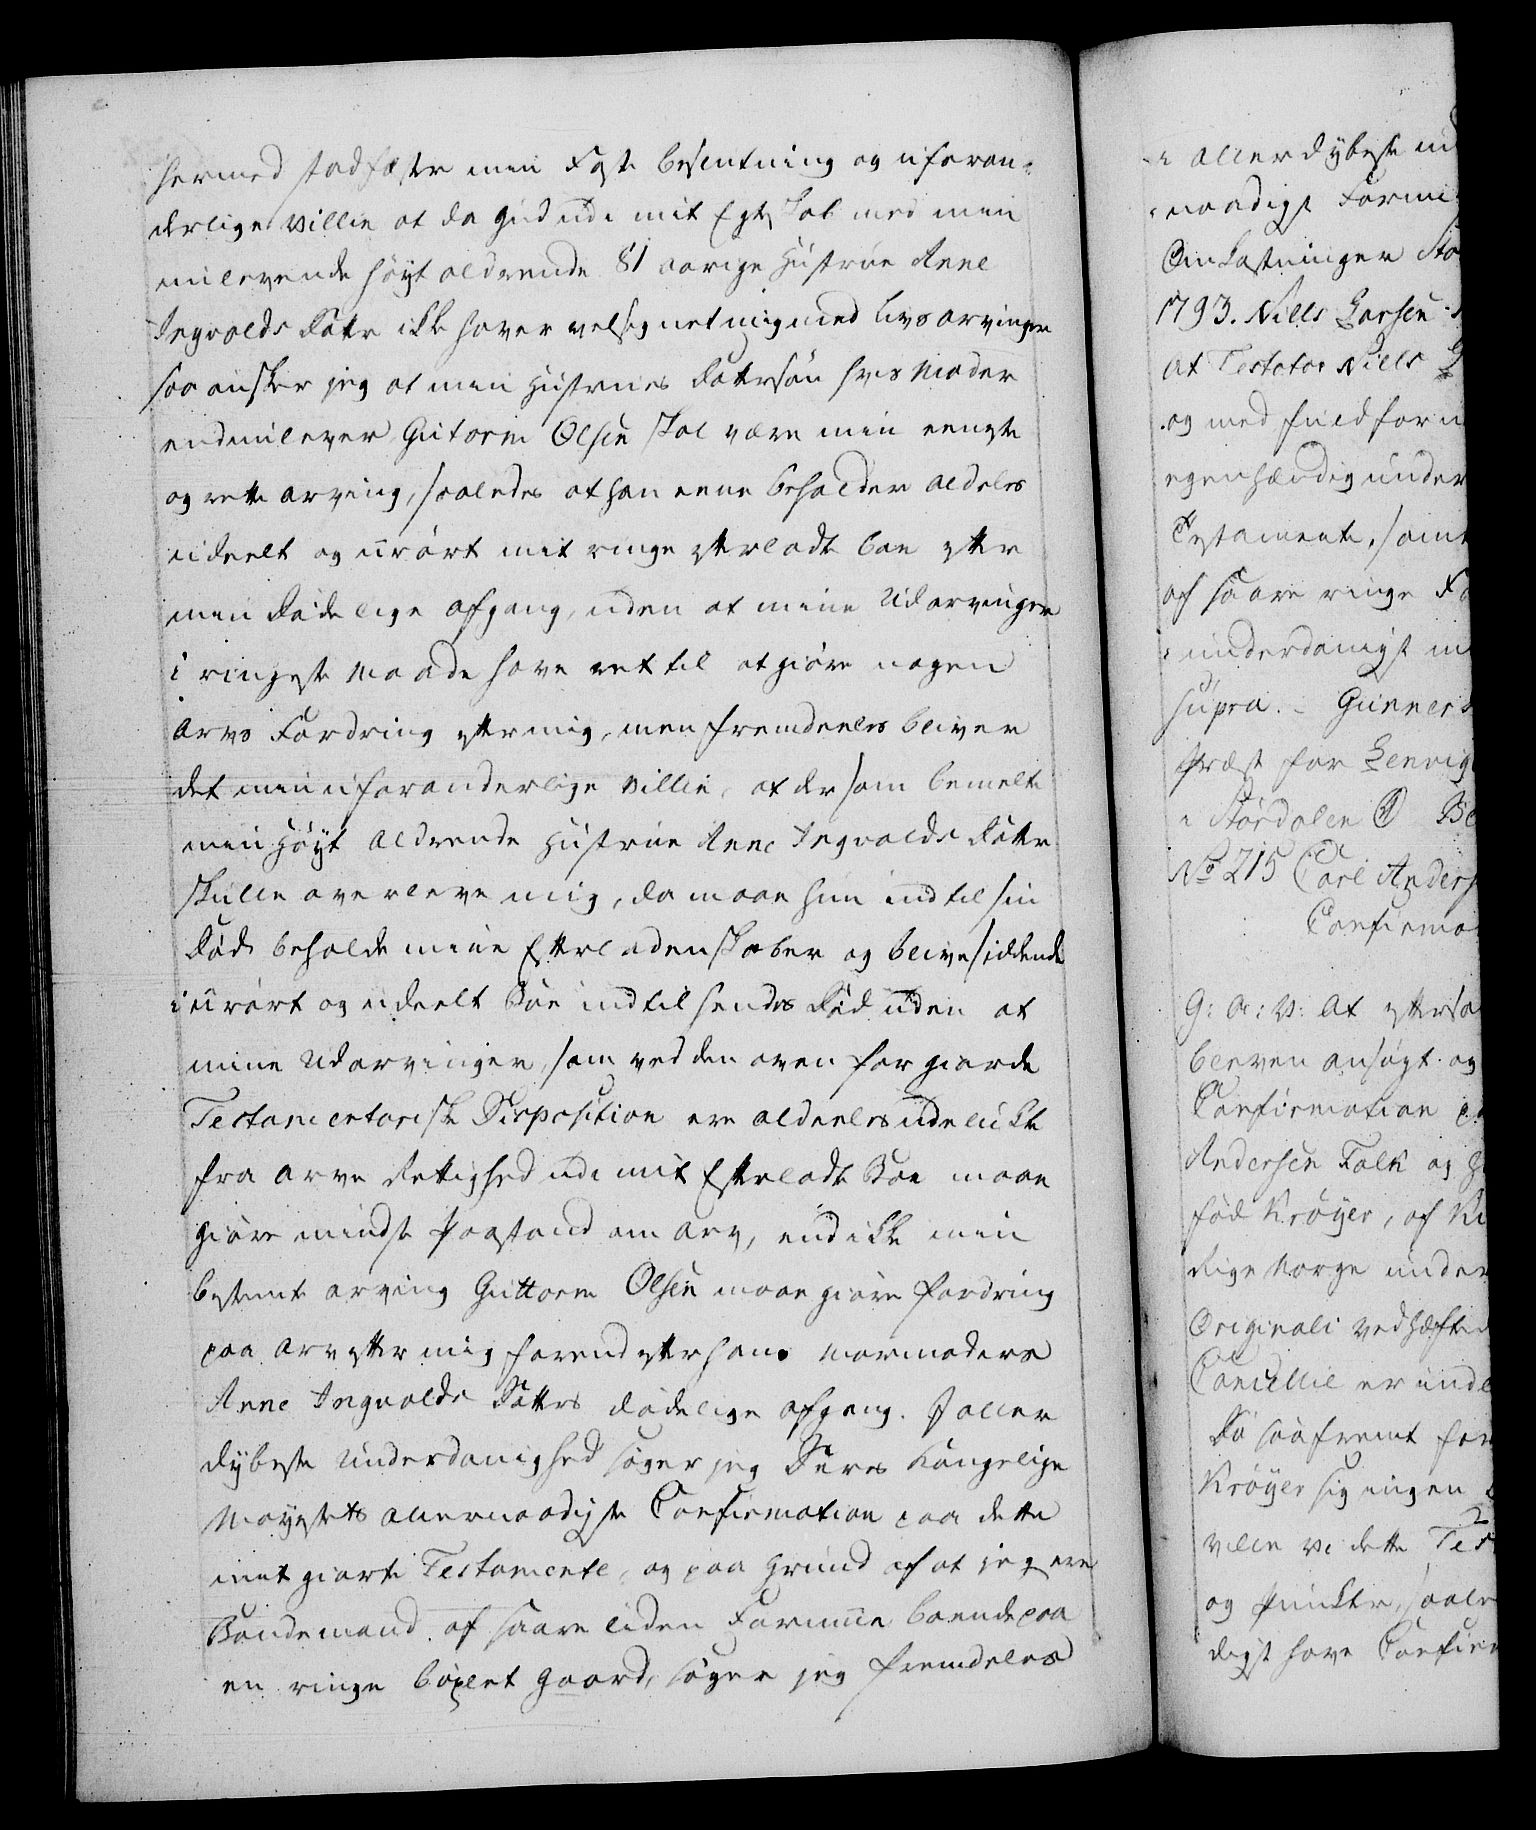 hermed stadfæster min Faste beslutning og uforan-
derlige Villie at da Gud udi mit Egteskab med min
nulevende høyt aldrende 81 aarige Hustrue Anne
Ingvolds Datter ikke haver velsignet mig med Livs arvinger
saa ønsker jeg at min Hustrues Dattersøn hvis Moder
endnu lever Gutorm Olsen skal være min eeneste
og rette arving, saaledes at han eene beholder aldeles
udeelt og urørt mit ringe efterladte boe efter
min Dødelige afgang, uden at mine Udarvinger
i ringeste Maade have ret til at giøre nogen
Arvs Fordring efter mig, men fremdeeles bliver
det min uforanderlige Villie, at dersom bemelte
min Høyt Aldrende Hustrue Anne Ingvolds Datter
skulle overleve mig, da maae hun indtil sin
Død beholde mine Efterladenskaber og blive siddende
i urørt og udeelt Boe indtil hendes Død uden at
mine Udarvinger, som ved den oven for giorde
Testamentariske Disposition ere aldeeles udelukte
fra Arve Rettighed udi mit Efterladte Boe maae
giøre mindste Paastand om Arv, end ikke min
bestemte arving Guttorm Olsen maae giøre fordring
paa Arv efter mig forend efter hans Mormoders
Anne Ingvolds Datters dødelige afgang. I aller
dybeste Underdanighed søger jeg Deres Kongelige
Mayestets allernaadigste Confirmation paa dette
mit giorte Testamente, og paa Grund af at jeg er
Bondemand af saare liden Formue boende paa
en ringe bøxlet Gaard, søger jeg fremdeles
i allerdybeste
naadigst
Omkostninger
1793. Niels Larsen
at Testator Niels
og med fuld
egenhændig under
Testamente, samt
af saare ringe
underdanigst
supra. - Gunner
præst for Lenvig
i Størdalen
No 215 Carl Anders
Confirma
G: A: V: At eftersom
bleven ansøgt og
Confirmation
Andersen Falk og
fød Krøyer, af
Rige Norge under
Originali vedhæfte
Cancellie er ind
Da saafremt
Krøyer sig ingen
ville Vi dette Tes
og Puncter, saale
digst have Confir